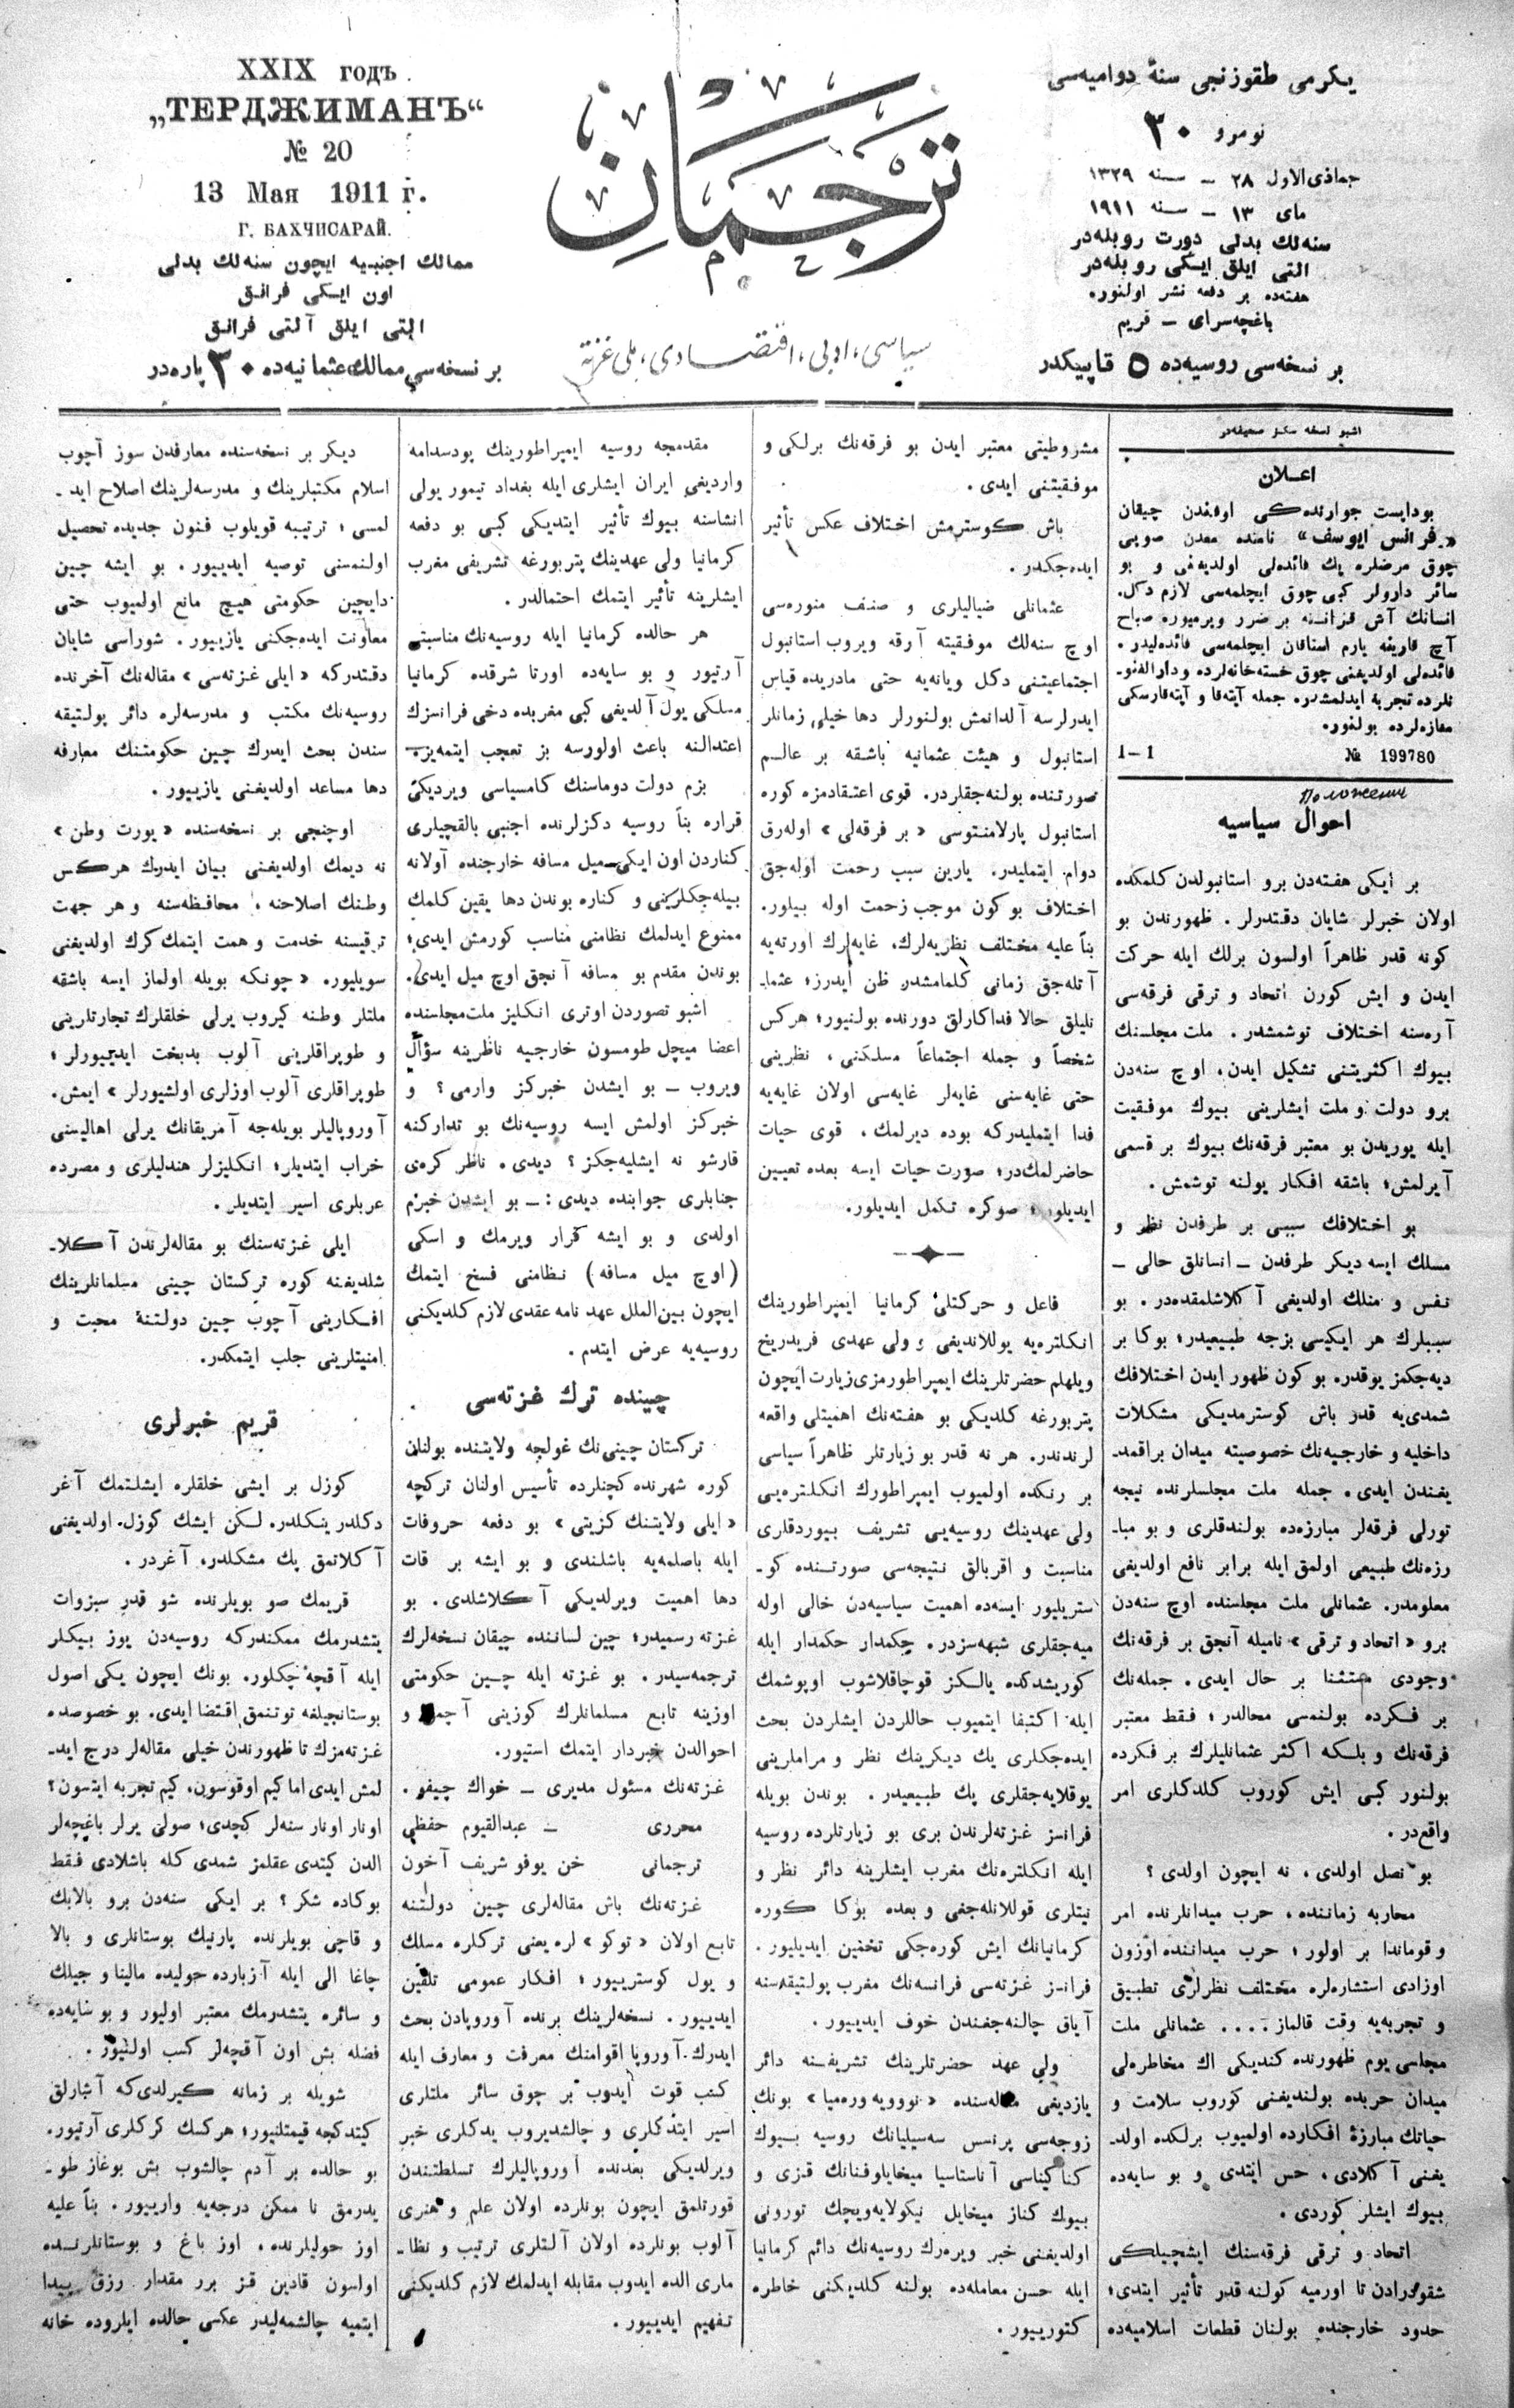 XXIX годъ.
„ТЕРДЖИМАНЪ“
№ 20
13 Мая 1911 г.
Г. БАХЧИСАРАЙ.
ممالك اجنبيه ايچون سنه‌لك بدلى
اون ايكى فرانق
التى ايلق آلتى فرانق
بر نسخه‌سى ممالك عثمانيه‌ده ٣٠ پاره‌در
ترجمان
سياسى، ادبى، اقتصادى، ملى غزته
يكرمى طقوزنجى سنۀ دواميه‌سى
نومرو ٢٠
جماذى الاول ٢٨ ـ سنه ١٣٢٩
ماى ١٣ ـ سنه ١٩١١
سنه‌لك بدلى دورت روبله‌در
التى ايلق ايكى روبله‌در
هفته‌ده بر دفعه نشر اولنور.
باغچه‌سراى ـ قريم
بر نسخه‌سى روسيه‌ده ٥ قاپيكدر
اشبو نسخه سكز صحيفه‌در
اعلان
بوداپست جوارنده‌كى اوفندن چيقان
«فرانس ايوسف» نامنده معدن صويى
چوق مرضلره پك فائده‌لى اولديغى و بو
سائر دارولر كبى چوق ايچلمه‌سى لازم دكل.
انسانك آش قزاننه بر ضرر ويرميوره صباح
آچ قارينه يارم استاقان ايچلمه‌سى فائده‌ليدر.
فائده‌لى اولديغنى چوق خسته‌خانه‌لرده و دار الفنو ـ
نلرده تجربه ايدلمشدر. جمله آپته‌قا و آپته‌قارسكى
مغازه‌لرده بولنور.
№ 199780 1—1
احوال سياسيه
بر ايكى هفته‌دن برو استانبولدن كلمكده
اولان خبرلر شايان دقتدرلر. ظهورندن بو
كونه قدر ظاهراً اولسون برلك ايله حركت
ايدن و ايش كورن اتحاد و ترقى فرقه‌سى
آره‌سنه اختلاف توشمشدر. ملت مجلسنك
بيوك اكثريتنى تشكيل ايدن، اوچ سنه‌دن
برو دولت و ملت ايشلرينى بيوك موفقيت
ايله يوريدن بو معتبر فرقه‌نك بيوك بر قسمى
آيرلمش؛ باشقه افكار يولنه توشمش.
بو اختلافك سببى بر طرفدن نظر و
مسلك ايسه ديكر طرفدن ـ انسانلق حالى ـ
نفس و منلك اولديغى آكلاشلمقده‌در. بو
سببلرك هر ايكيسى بزجه طبيعيدر؛ بوكا بر
ديه‌جكمز يوقدر. بو كون ظهور ايدن اختلافك
شمدى‌يه قدر باش كوسترمديكى مشكلات
داخليه و خارجيه‌نك خصوصيته ميدان براقمد ـ
يغندن ايدى. جمله ملت مجلسلرنده نيجه
تورلى فرقه‌لر مبارزه‌ده بولندقلرى و بو مبا ـ
رزه‌نك طبيعى اولمق ايله برابر نافع اولديغى
معلومدر. عثمانلى ملت مجلسنده اوچ سنه‌دن
برو «اتحاد و ترقى» ناميله آنجق بر فرقه‌نك
وجودى مستثنا بر حال ايدى. جمله‌نك
بر فكرده بولنمسى محالدر؛ فقط معتبر
فرقه‌نك و بلكه اكثر عثمانليلرك بر فكرده
بولنور كبى ايش كوروب كلدكلرى امر
واقع‌در.
بو نصل اولدى، نه ايچون اولدى؟
محاربه زماننده، حرب ميدانلرنده امر
و قوماندا بر اولور؛ حرب ميداننده اوزون
اوزادى استشاره‌لره مختلف نظرلرى تطبيق
و تجربه‌يه وقت قالماز.... عثمانلى ملت
مجلسى يوم ظهورنده كنديكى اك مخاطره‌لى
ميدان حربده بولنديغنى كوروب سلامت و
حياتك مبارزۀ افكارده اولميوب برلكده اولد ـ
يغنى آكلادى، حس ايتدى و بو سايه‌ده
بيوك ايشلر كوردى.
اتحاد و ترقى فرقه‌سنك ايشچيلكى
شقودرادن تا اورميه كولنه قدر تأثير ايتدى؛
حدود خارجنده بولنان قطعات اسلاميه‌ده
مشروطيتى معتبر ايدن بو فرقه‌نك برلكى و
موفقيتنى ايدى.
باش كوسترمش اختلاف عكس تأثير
ايده‌جكدر.
عثمانلى ضياليلرى و صنف منوره‌سى
اوچ سنه‌لك موفقيته آرقه ويروب استانبول
اجتماعيتنى دكل ويانه‌يه حتى مادريده قياس
ايدرلرسه آلدانمش بولنورلر دها خيلى زمانلر
استانبول و هيئت عثمانيه باشقه بر عالم
صورتنده بولنه‌جقلردر. قوى اعتقادمزه كوره
استانبول پارلامنتوسى «بر فرقه‌لى» اوله‌رق
دوام ايتمليدر. يارين سبب رحمت اوله‌جق
اختلاف بو كون موجب زحمت اوله بيلور.
بناً عليه مختلف نظريه‌لرك، غايه‌لرك اورته‌يه
آتله‌جق زمانى كلمامشدر ظن ايدرز؛ عثما ـ
نليلق حالا فداكارلق دورنده بولنيور؛ هركس
شخصاً و جمله اجتماعاً مسلكنى، نظرينى
حتى غايه‌سنى غايه‌لر غايه‌سى اولان غايه‌يه
فدا ايتمليدركه بوده ديرلمك، قوى حيات
حاضرلمك‌در؛ صورت حيات ايسه بعده تعيين
ايديلور؛ صوكره تكمل ايديلور.
فاعل و حركتلى كرمانيا ايمپراطورينك
انكلتره‌يه يوللانديغى و ولى عهدى فريدريخ
ويلهلم حضرتلرينك ايمپراطورمزى زيارت ايچون
پتربورغه كلديكى بو هفته‌نك اهميتلى واقعه
لرندندر. هر نه قدر بو زيارتلر ظاهراً سياسى
بر رنكده اولميوب ايمپراطورك انكلتره‌يى
ولى عهدينك روسيه‌يى تشريف بيوردقلرى
مناسبت و اقربالق نتيجه‌سى صورتنده كو ـ
ستريليور ايسه‌ده اهميت سياسيه‌دن خالى اوله
ميه‌جقلرى شبهه‌سزدر. حكمدار حكمدار ايله
كوريشدكده يالكز قوچاقلاشوب اوپوشمك
ايله اكتفا ايتميوب حاللردن ايشلردن بحث
ايده‌جكلرى يك ديكرينك نظر و مراملرينى
يوقلايه‌جقلرى پك طبيعيدر. بوندن بويله
فرانسز غزته‌لرندن برى بو زيارتلرده روسيه
ايله انكلتره‌نك مغرب ايشلرينه دائر نظر و
نيتلرى قوللانله‌جغى و بعده بوكا كوره
كرمانيانك ايش كوره‌جكى تخمين ايديليور.
فرانسز غزته‌سى فرانسه‌نك مغرب پولتيقه‌سنه
آياق چالنه‌جغندن خوف ايدييور.
ولى عهد حضرتلرينك تشريفنه دائر
يازديغى مقاله‌سنده «نوويه وره‌ميا» بونك
زوجه‌سى پرنسس سه‌سيليانك روسيه بيوك
كناكيناسى آناستاسيا ميخايلوفنانك قزى و
بيوك كناز ميخايل نيكولايه‌ويچك تورونى
اولديغنى خبر ويره‌رك روسيه‌نك دائم كرمانيا
ايله حسن معامله‌ده بولنه كلديكنى خاطره
كتورييور.
مقدمجه روسيه ايمپراطورينك پودسدامه
وارديغى ايران ايشلرى ايله بغداد تيمور يولى
انشاسنه بيوك تأثير ايتديكى كبى بو دفعه
كرمانيا ولى عهدينك پتربورغه تشريفى مغرب
ايشلرينه تأثير ايتمك احتمالدر.
هر حالده كرمانيا ايله روسيه‌نك مناسبتى
آرتيور و بو سايه‌ده اورتا شرقده كرمانيا
مسلكى يول آلديغى كبى مغربده دخى فرانسزك
اعتدالنه باعث اولورسه بز تعجب ايتمه‌يز.
بزم دولت دوماسنك كامسياسى ويرديكى
قراره بناً روسيه دكزلرنده اجنبى بالقچيلرى
كناردن اون ايكى ميل مسافه خارجنده آولانه
بيله‌جكلرينى و كناره بوندن دها يقين كلمك
ممنوع ايدلمك نظامنى مناسب كورمش ايدى؛
بوندن مقدم بو مسافه آنجق اوچ ميل ايدى.
اشبو تصوردن اوترى انكليز ملت مجلسنده
اعضا ميچل طومسون خارجيه ناظرينه سؤال
ويروب ـ بو ايشدن خبركز وارمى؟ و
خبركز اولمش ايسه روسيه‌نك بو تداركنه
قارشو نه ايشليه‌جكز؟ ديدى. ناظر كره‌ى
جنابلرى جوابنده ديدى: ـ بو ايشدن خبرم
اولدى و بو ايشه قرار ويرمك و اسكى
(اوچ ميل مسافه) نظامنى فسخ ايتمك
ايچون بين الملل عهد نامه عقدى لازم كلديكنى
روسيه‌يه عرض ايتدم.
چينده ترك غزته‌سى
تركستان چينى‌نك غولجه ولايتنده بولنان
كوره شهرنده كچنلرده تأسيس اولنان تركچه
«ايلى ولايتنك كزيتى» بو دفعه حروفات
ايله باصلمه‌يه باشلندى و بو ايشه بر قات
دها اهميت ويرلديكى آكلاشلدى. بو
غزته رسميدر؛ چين لساننده چيقان نسخه‌لرك
ترجمه‌سيدر. بو غزته ايله چين حكومتى
اوزينه تابع مسلمانلرك كوزينى آچمق و
احوالدن خبردار ايتمك استيور.
غزته‌نك مسئول مديرى ـ خواك چيفو.
محررى ـ عبدالقيوم حفظى
ترجمانى خن يوفو شريف آخون
غزته‌نك باش مقاله‌لرى چين دولتنه
تابع اولان «توكو» لره يعنى تركلره مسلك
و يول كوسترييور؛ افكار عمومى تلقين
ايدييور. نسخه‌لرينك برنده آوروپادن بحث
ايدرك آوروپا اقوامنك معرفت و معارف ايله
كسب قوت ايدوب بر چوق سائر ملتلرى
اسير ايتدكلرى و چالشديروب يدكلرى خبر
ويرلديكى بعدنده اوروپاليلرك تسلطتندن
قورتلمق ايچون بونلرده اولان علم و هنرى
آلوب بونلرده اولان آلتلرى ترتيب و نظا ـ
مارى الده ايدوب مقابله ايدلمك لازم كلديكنى
تفهيم ايدييور.
ديكر بر نسخه‌سنده معارفدن سوز آچوب
اسلام مكتبلرينك و مدرسه‌لرينك اصلاح ايد ـ
لمسى؛ ترتيبه قويلوب فنون جديده تحصيل
اولنمسنى توصيه ايدييور. بو ايشه چين
دايچين حكومتى هيچ مانع اولميوب حتى
معاونت ايده‌جكنى يازييور. شوراسى شايان
دقتدركه «ايلى غزته‌سى» مقاله‌نك آخرنده
روسيه‌نك مكتب و مدرسه‌لره دائر پولتيقه
سندن بحث ايدرك چين حكومتنك معارفه
دها مساعد اولديغنى يازييور.
اوچنجى بر نسخه‌سنده «يورت وطن»
نه ديمك اولديغنى بيان ايدرك هركس
وطنك اصلاحنه، محافظه‌سنه و هر جهت
ترقيسنه خدمت و همت ايتمك كرك اولديغنى
سويليور. «چونكه بويله اولماز ايسه باشقه
ملتلر وطنه كيروب يرلى خلقلرك تجارتلرينى
و طوپراقلرينى آلوب بدبخت ايدييورلر؛
طوپراقلرى آلوب اوزلرى اولشيورلر» ايمش.
آوروپاليلر بويله‌جه آمريقانك يرلى اهاليسنى
خراب ايتديلر؛ انكليزلر هندليلرى و مصرده
عربلرى اسير ايتديلر.
ايلى غزته‌سنك بو مقاله‌لرندن آكلا ـ
شلديغنه كوره تركستان چينى مسلمانلرينك
افكارينى آچوب چين دولتنۀ محبت و
امنيتلرينى جلب ايتمكدر.
قريم خبرلرى
كوزل بر ايشى خلقلره ايشلتمك آغر
دكلدر ينكلدر. لكن ايشك كوزل اولديغنى
آكلاتمق پك مشكلدر، آغردر.
قريمك صو بويلرنده شو قدر سبزوات
يتشدرمك ممكندركه روسيه‌دن يوز بيكلر
ايله آقچه چكلور. بونك ايچون يكى اصول
بوستانجيلغه توتنمق اقتضا ايدى. بو خصوصده
غزته‌مزك تا ظهورندن خيلى مقاله‌لر درج ايد ـ
لمش ايدى اما كيم اوقوسون، كيم تجربه ايتسون؟
اونار اونار سنه‌لر كچدى؛ صولى يرلر باغچه‌لر
الدن كيتدى عقلمز شمدى كله باشلادى فقط
بوكاده شكر؟ بر ايكى سنه‌دن برو بالابك
و قاچى بويلرنده پارنيك بوستانلرى و بالا
چاغا الى ايله آزبارده حوليده مالينا و جيلك
و سائره يتشدرمك معتبر اوليور و بو سايه‌ده
فضله بش اون آقچه‌لر كسب اولنيور.
شويله بر زمانه كيرلدى‌كه آشارلق
كيتدكجه قيمتلنيور؛ هركسك كركلرى آرتيور.
بو حالده بر آدم چالشوب بش بوغاز طو ـ
يدرمق نا ممكن درجه‌يه وارييور. بناً عليه
اوز حوليلرنده، اوز باغ و بوستانلرنده
اولسون قادين قز برر مقدار رزق پيدا
ايتميه چالشمه‌ليدر عكسى حالده ايلروده خانه